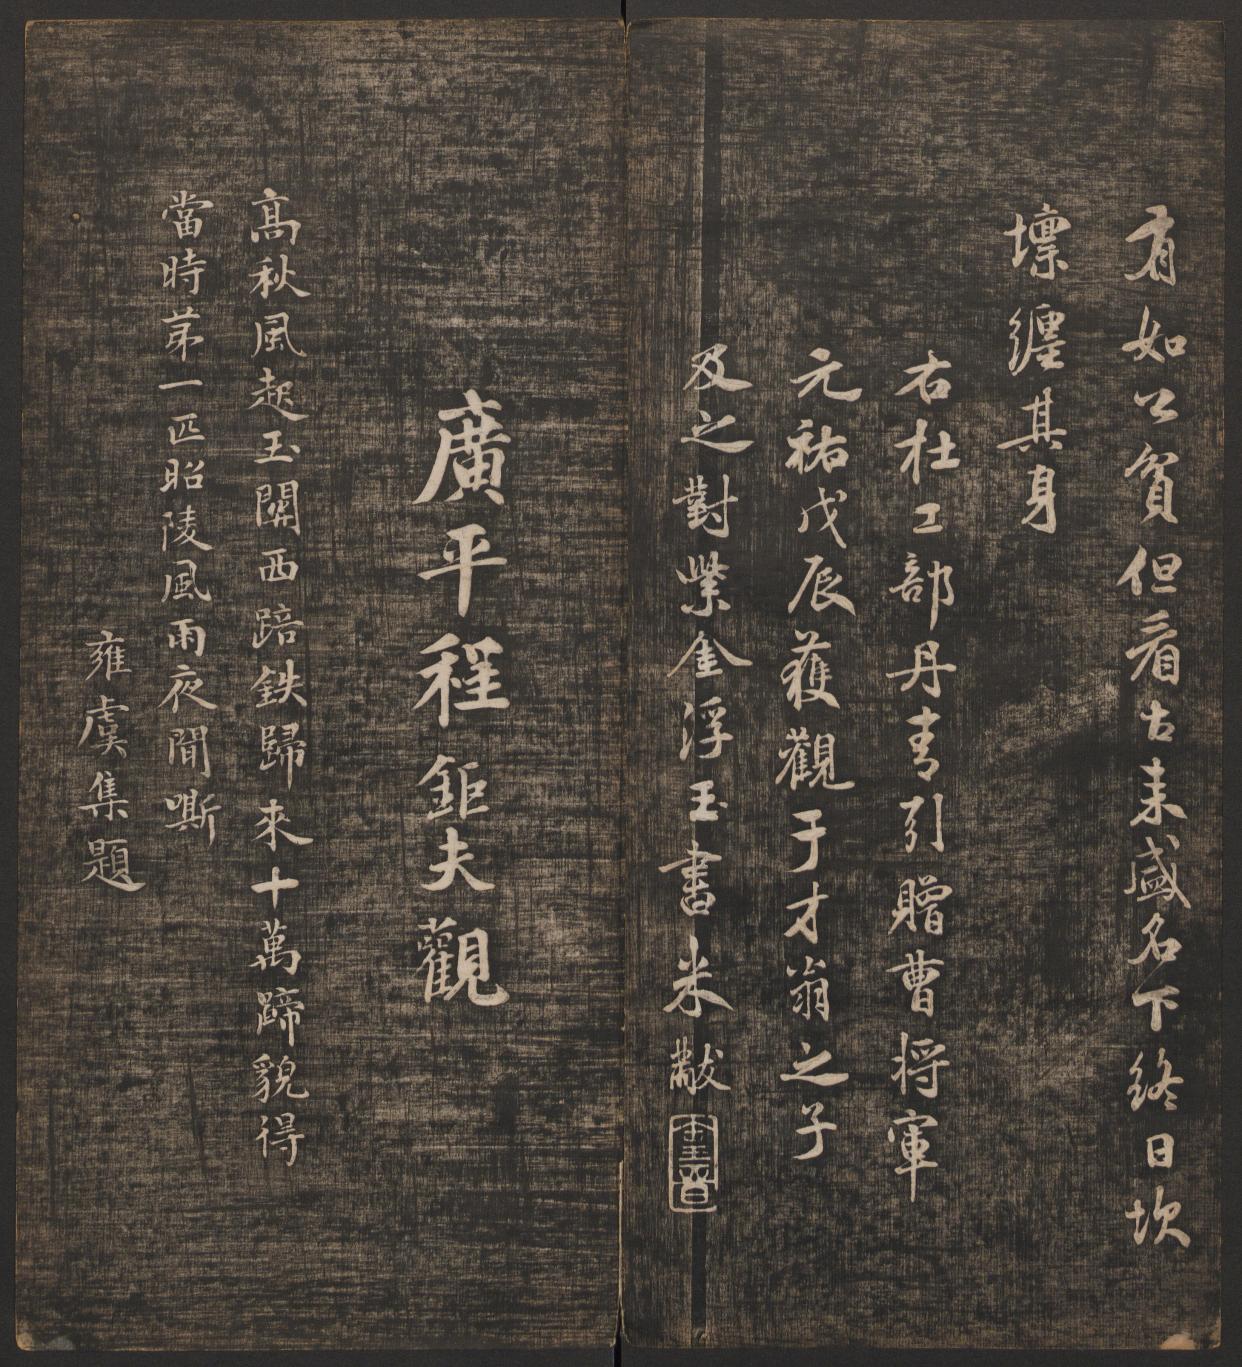 有如公貧但看古来盛名下終日坎
壈纏其身
右杜工部丹青引贈曹将軍
元祐戊辰獲觀于才翁之子
及之對紫金浮玉書米黻
廣平程鉅夫觀
高秋風起玉關西踣鉄歸來十萬蹄貌得
當時苐一匹昭陵風雨夜聞嘶
雍虞集題